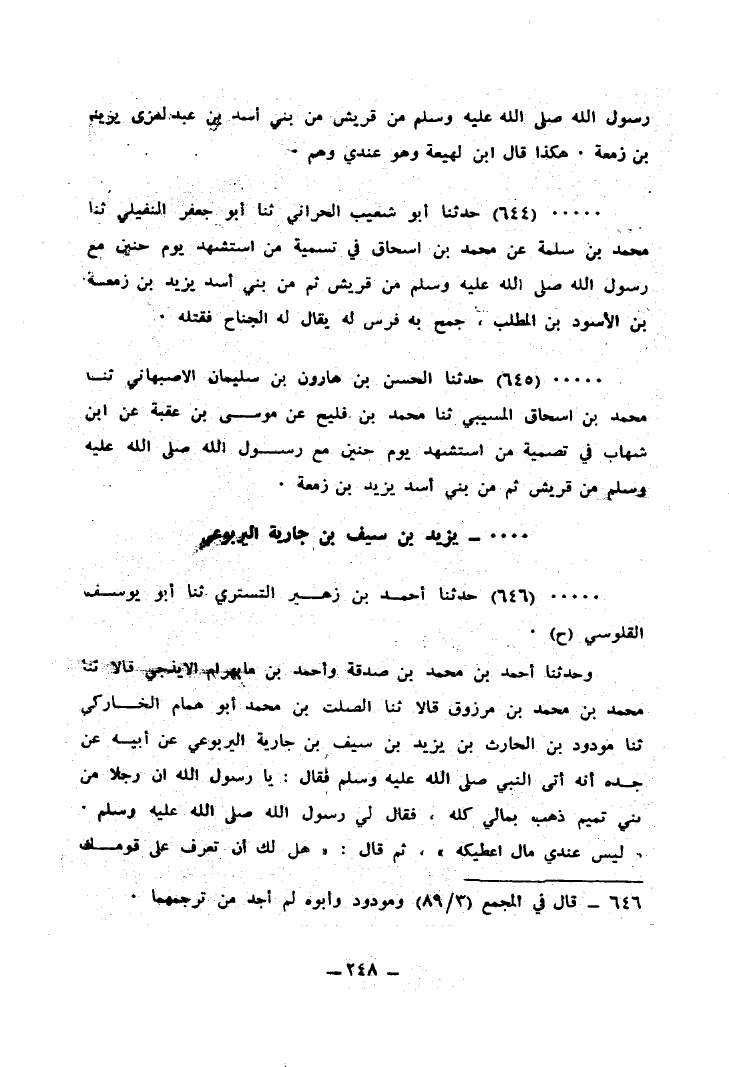 رسول الله صلى الله عليه وسلم من قريش من بني أسد بن عبدالعزى يزيد
بن زمعة ٠ هكذا قال ابن لهيعة وهو عندي وهم ٠
٠٠٠٠٠ (٦٤٤) حدثنا أبو شعيب الحراني ثنا أبو جعفر النفيلي ثنا
محمد بن سلمة عن محمد بن اسحاق في تسمية من استشهد يوم حنين مع
رسول الله صلى الله عليه وسلم من قريش ثم من بني أسد يزيد بن زمعــة
بن الأسود بن المطلب ، جمح به فرس له يقال له الجناح فقتله ٠
٠٠٠٠٠ (٦٤٥) حدثنا الحسن بن هارون بن سليمان الاصبهاني ثنــا
محمد بن اسحاق المسيبي ثنا محمد بن فليح عن موســـى بن عقبة عن ابن
شهاب في تصمية من استشهد يوم حنين مع رســـول الله صلى الله عليه
وسلم من قريش ثم من بني أسد يزيد بن زمعة ٠
٠٠٠٠ ـ يزيد بن سيف بن جارية اليربوعي
٠٠٠٠٠ (٦٤٦) حدثنا أحمـد بن زهـــير التستري ثنا أبو يوســـف
القلوسي (ح) ٠
وحدثنا أحمد بن محمد بن صدقة وأحمد بن مابهرام الايذجي قالا ثنا
محمد بن محمد بن مرزوق قالا ثنا الصلت بن محمد أبو همام الخـــاركي
ثنا مودود بن الحارث بن يزيد بن سيف بن جارية اليربوعي عن أبيــه عن
جــده أنه أتى النبي صلى الله عليه وسلم فقال : يا رسول الله ان رجلا من
بني تميم ذهب بمالي كله ، فقال لي رسول الله صلى الله عليه وسلم ٠
« ليس عندي مال اعطيكه » ، ثم قال : « هل لك أن تعرف على قومـــك
٦٤٦ ـ قال في المجمع (٨٩/٣) ومودود وأبوه لم أجد من ترجمهما ٠
ـ ٢٤٨ ـ